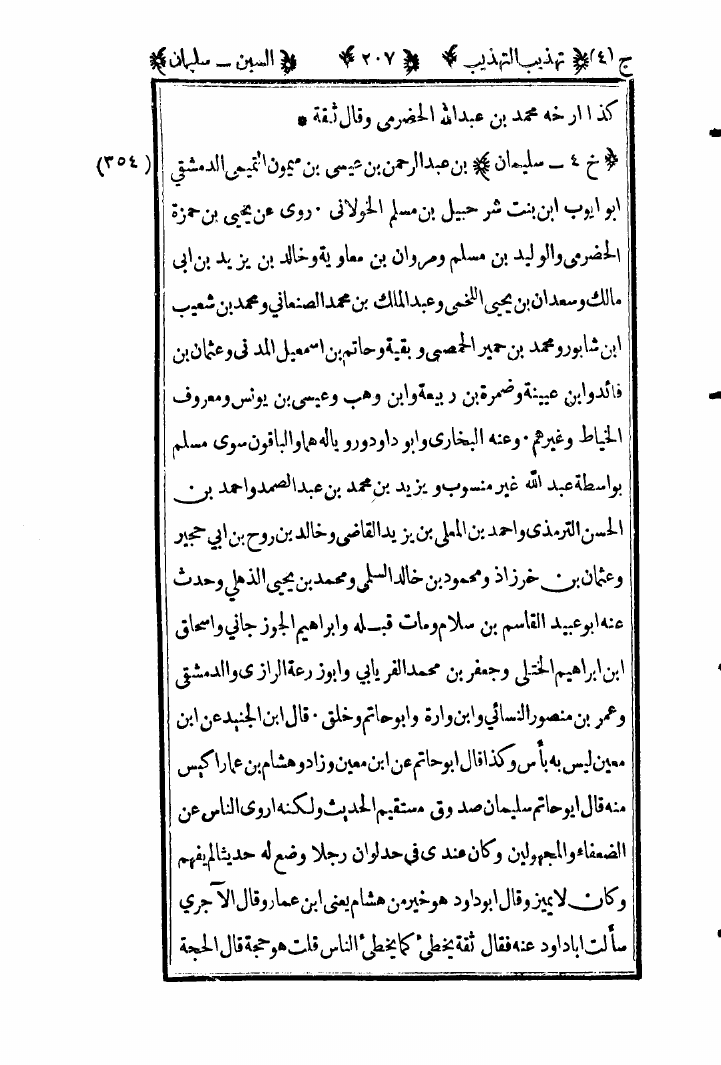 ج (٤) تهذيب التهذيب ٢٠٧ السين ـ سليمان
كذا ارخه محمد بن عبدالله الحضرمى وقال ثقة *
(٣٥٤) خ ٤ ـ سليمان بن عبدالرحمن بن عيسى بن ميمون التميمى الدمشقي
ابو ايوب ابن بنت شر حبيل بن مسلم الخولانى · روى عن يحيى بن حمزة
الحضرمى والوليد بن مسلم ومروان بن معاوية وخالد بن يزيد بن ابى
مالك وسعدان بن يحيى اللخمى وعبدالملك بن محمد الصنعاني ومحمد بن شعيب
ابن شابور ومحمد بن حمير الحمصى وبقية وحاتم بن اسمعيل المدنى وعثمان بن
فائد وابن عيينة وضمرة بن ربيعة وابن وهب وعيسى بن يونس ومعروف
الخياط وغيرهم · وعنه البخارى وابو داود وروياله هما والباقون سوى مسلم
بواسطة عبد الله غير منسوب ويزيد بن محمد بن عبدالصمد واحمد بن
الحسن الترمذى واحمد بن المعلى بن يزيد القاضى وخالد بن روح بن ابي حجير
وعثمان بن خرزاذ ومحمود بن خالد السلمى ومحمد بن يحيى الذهلي وحدث
عنه ابو عبيد القاسم بن سلام ومات قبله وابراهيم الجوزجاني واسحاق
ابن ابراهيم الختلى وجعفر بن محمد الفريابي وابوزرعة الرازى والدمشقى
وعمر بن منصور النسائي وابن وارة وابو حاتم وخلق · قال ابن الجنيد عن ابن
معين ليس به بأس وكذا قال ابو حاتم عن ابن معين وزاد وهشام بن عمار اكيس
منه قال ابو حاتم سليمان صدوق مستقيم الحديث ولكنه اروى الناس عن
الضعفاء والمجهولين وكان عندى في حد لوان رجلا وضع له حديثا لم يفهم
وكان لايميز وقال ابو داود هو خير من هشام يعنى ابن عمار وقال الآجري
سألت ابا داود عنه فقال ثقة يخطئ كما يخطئ الناس قلت هو حجة قال الحجة